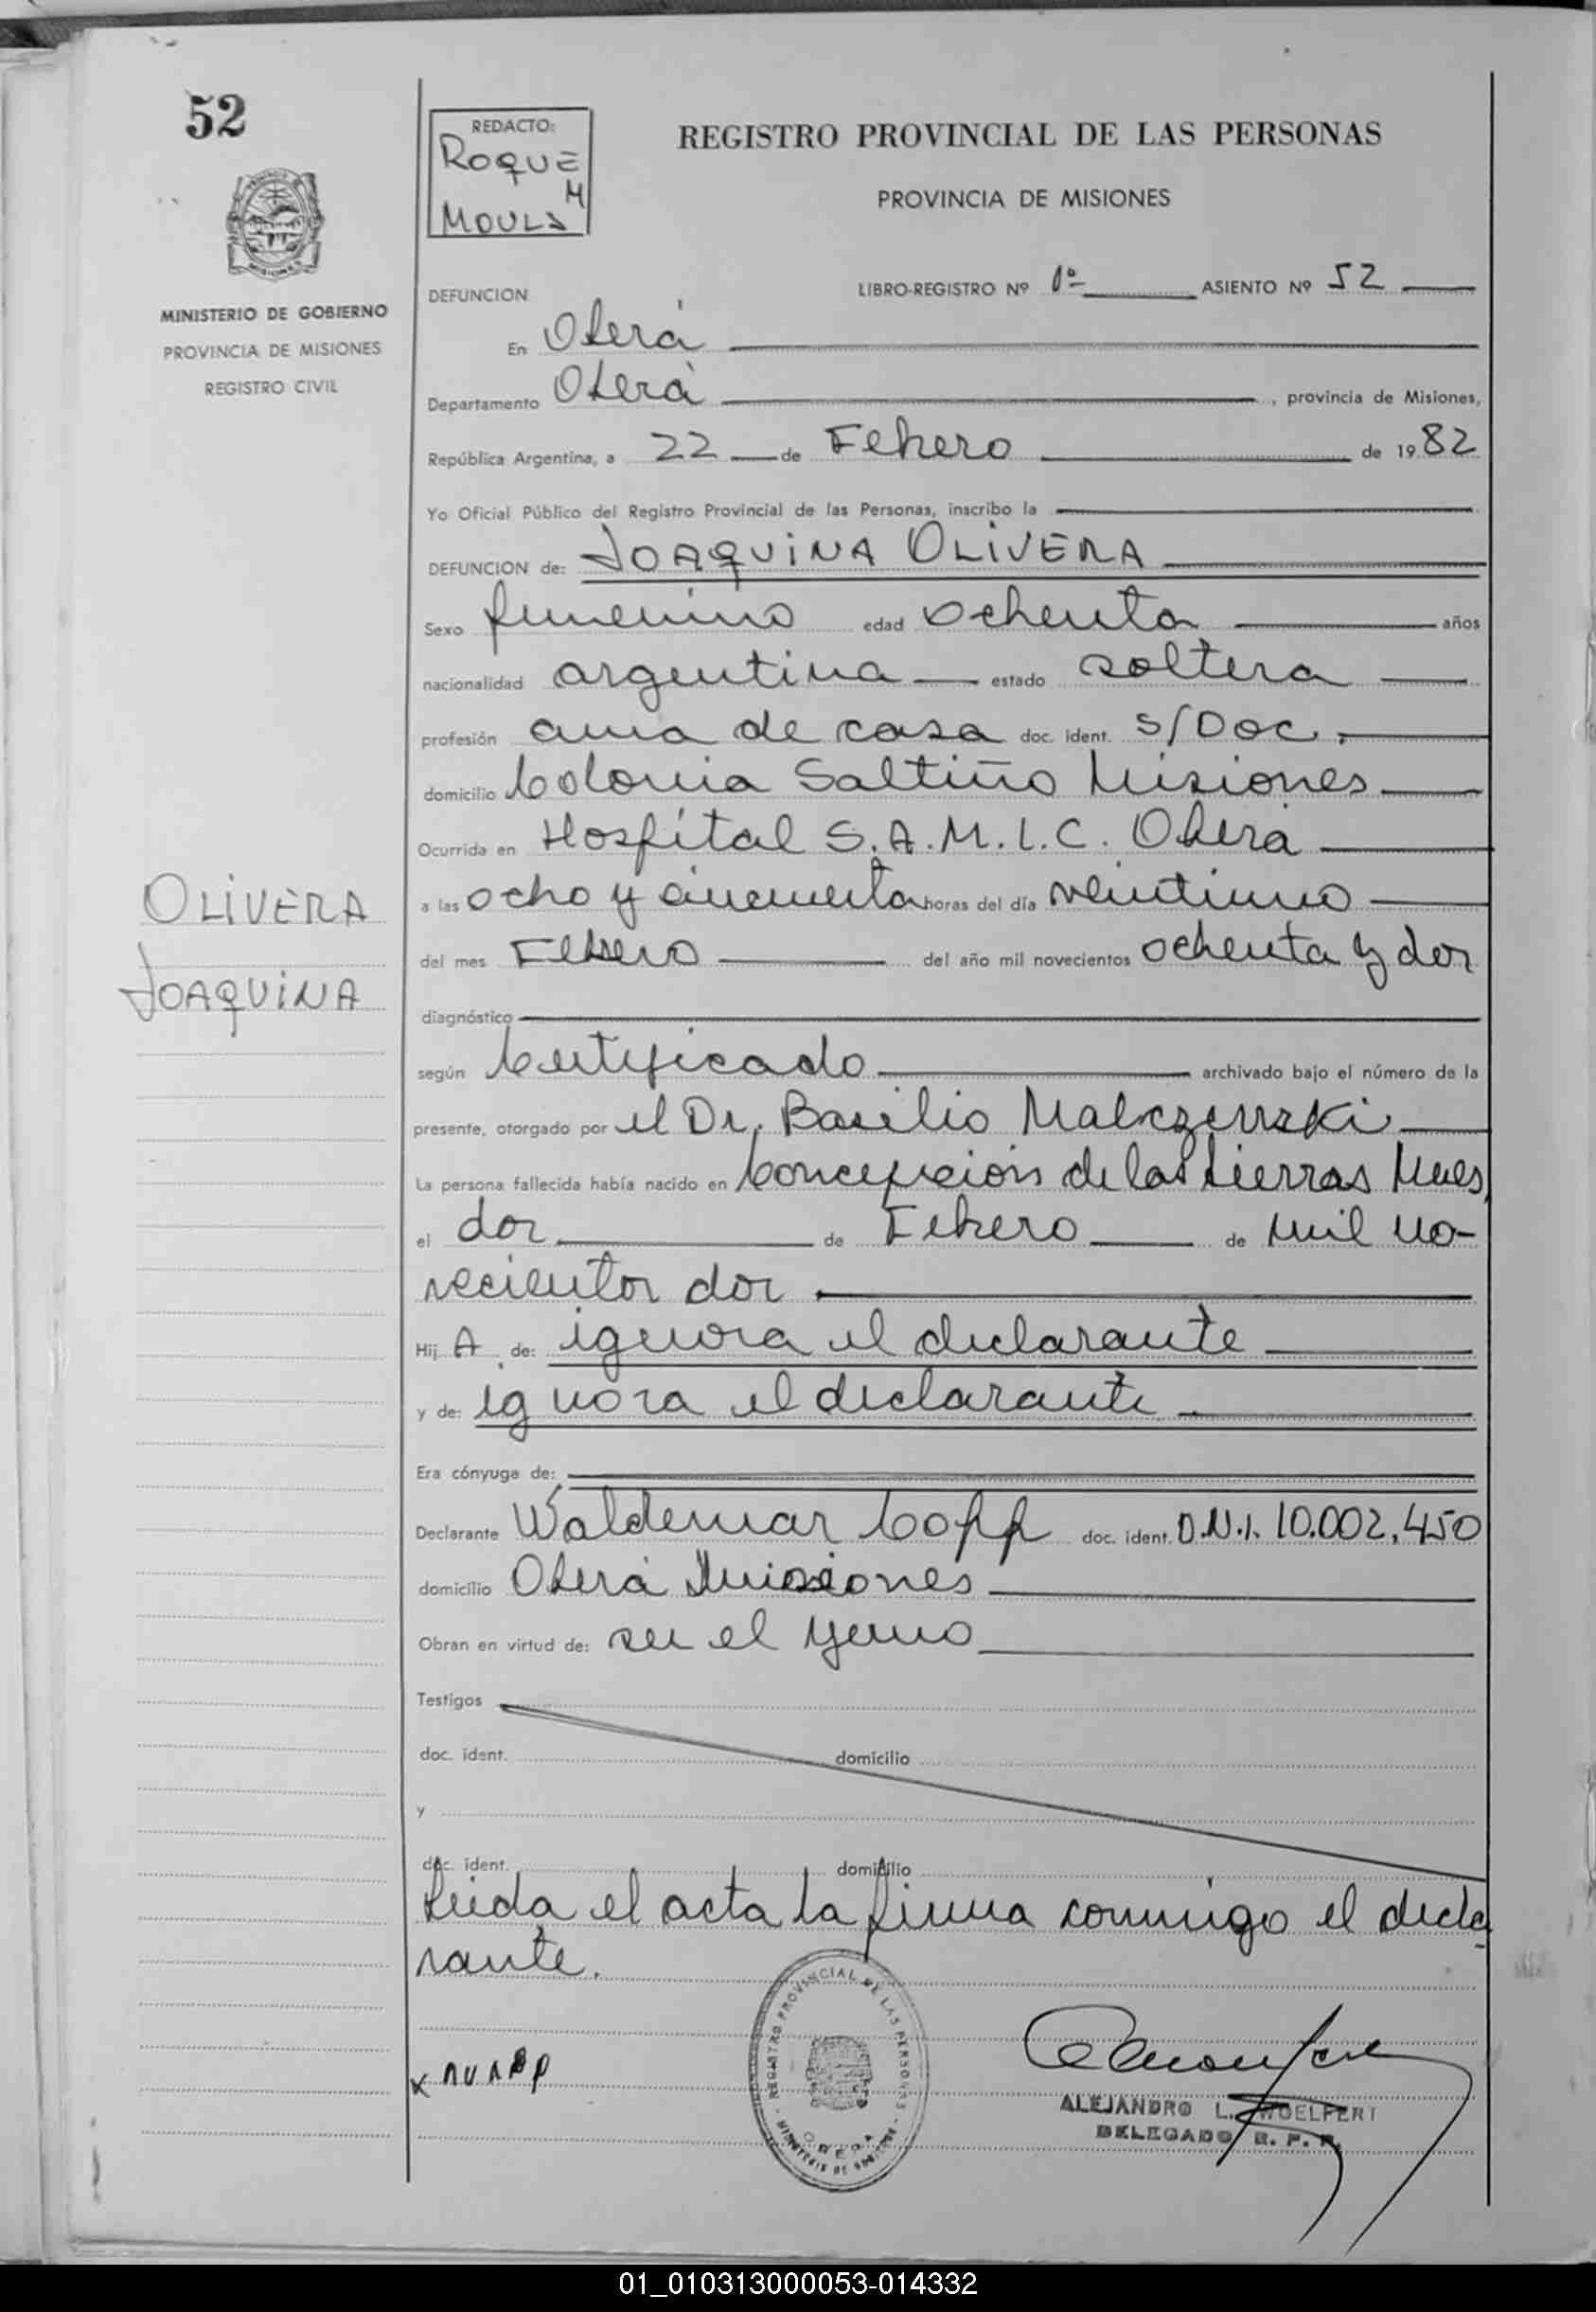 52
REDACTO:
ROQUE
M
MOULS
REGISTRO PROVINCIAL DE LAS PERSONAS
PROVINCIA DE MISIONES
MINISTERIO DE GOBIERNO
PROVINCIA DE MISIONES
REGISTRO CIVIL
DEFUNCION
LIBRO-REGISTRO Nº 1º ASIENTO Nº 52
En Oberá
Departamento Oberá, provincia de Misiones,
República Argentina, a 22 de Febrero de 1982
Yo Oficial Público del Registro Provincial de las Personas, inscribo la
DEFUNCION de: JOAQUINA OLIVERA
Sexo femenino edad ochenta años
nacionalidad argentina estado soltera
profesión ama de casa doc. ident. S/Doc.
domicilio Colonia Saltiño Misiones
Ocurrida en Hospital S.A.M.I.C. Oberá
OLIVERA
JOAQUINA
a las ocho y cincuenta horas del día veintiuno
del mes Febrero del año mil novecientos ochenta y dos
diagnóstico
según Certificado archivado bajo el número de la
presente, otorgado por el Dr. Basilio Malczewski
La persona fallecida había nacido en Concepción de las tierras Mnes
el dos de Febrero de mil no-
vecientos dos
Hij A de: ignora el declarante
y de: ignora el declarante
Era cónyuge de:
Declarante Waldemar Copp doc. ident. D.N.I. 10.002.450
domicilio Oberá Misiones
Obran en virtud de: ser el yerno
Testigos
doc. ident. domicilio
y
doc. ident. domicilio
Leída el acta la firma conmigo el decla
rante.
REGISTRO PROVINCIAL DE LAS PERSONAS
OBERA
MINISTERIO DE GOBIERNO
ALEJANDRO L. WOELFERT
DELEGADO R. P. P.
01_010313000053-014332